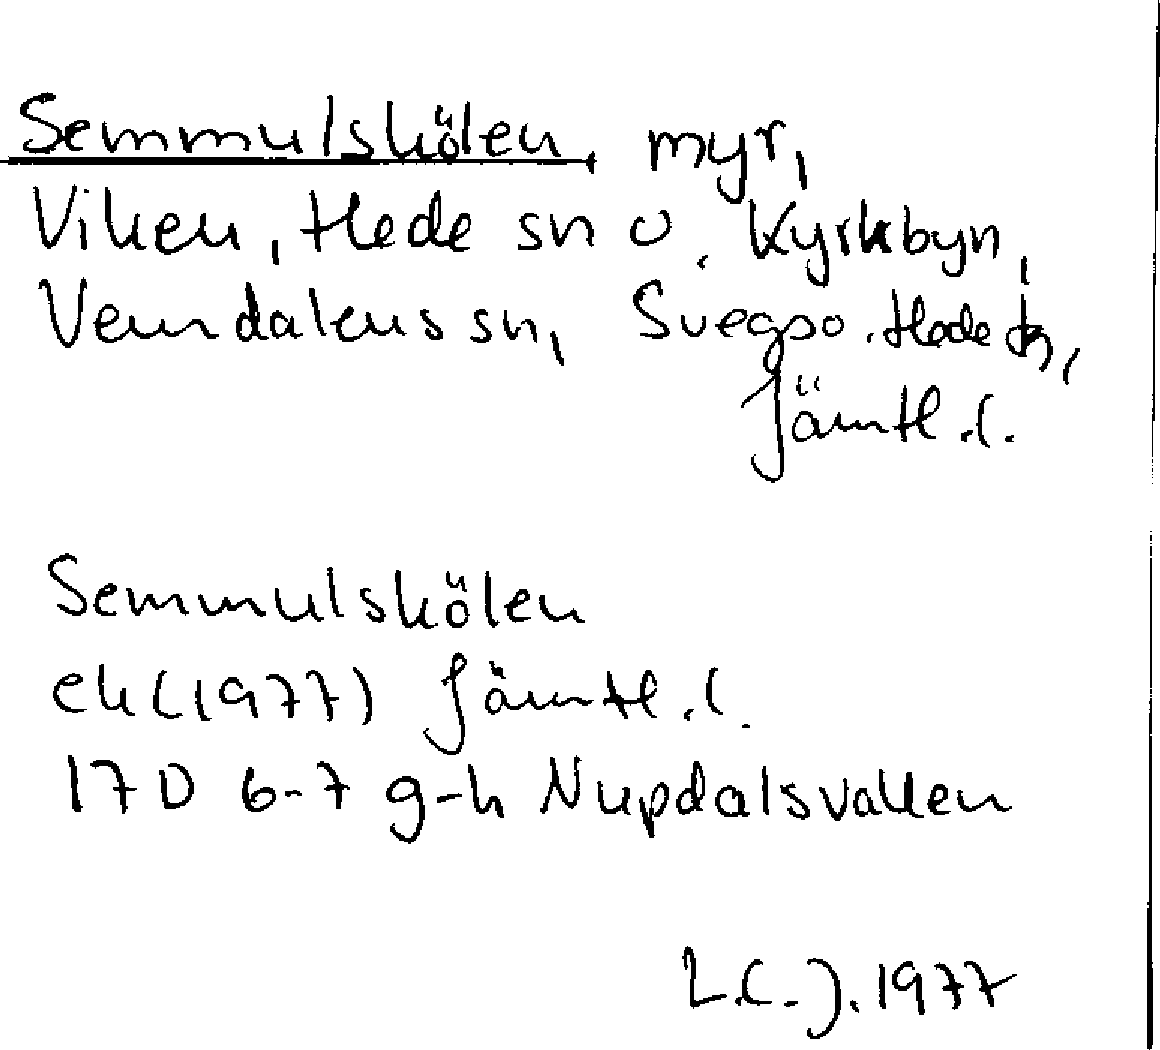 Semmulskölen, myr,
Viken, Hede sn o. Kyrkbyn,
Vemdalens sn, Svegs o. Hede tr,
Jämtl. l.
Semmulskölen
ek (1977) Jämtl. l.
17D 6-7 g-h Nupdalsvallen
L.C.J. 1977